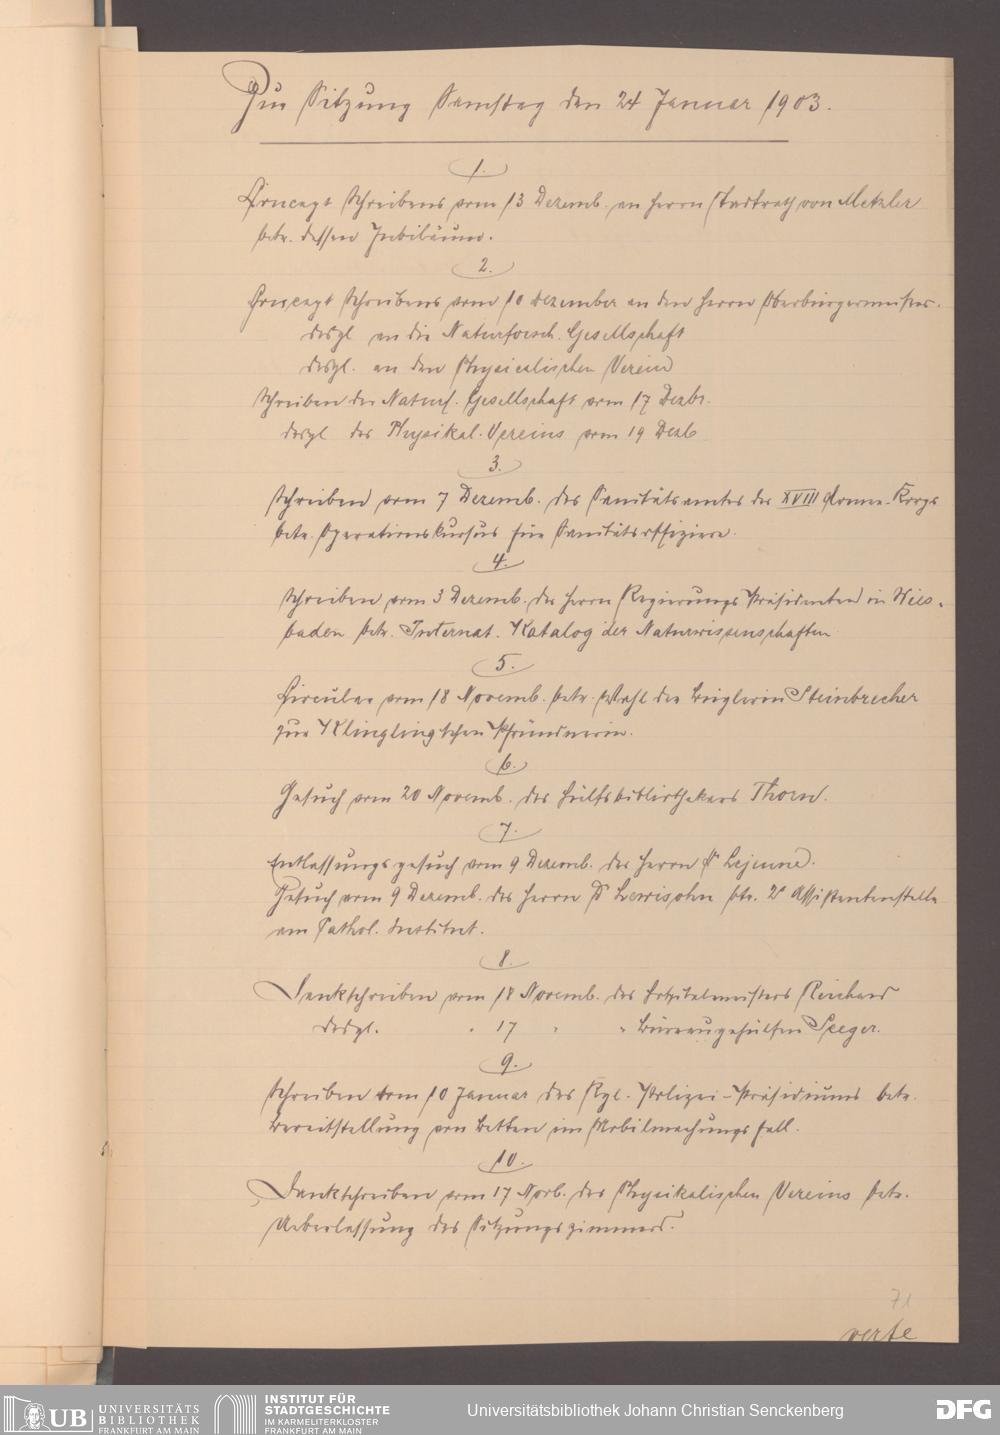 Zur Sitzung Samstag den 24 Januar 1903.
1.
Concept Schreibens vom 13 Dezemb. an Herrn Stadtrath von Metzler
betr. dessen Jubiläum.
2.
Concept Schreibens vom 10 Dezember an den Herrn Oberbürgermeister.
desgl. an die Naturforsch. Gesellschaft
desgl. an den Physicalischen Verein
Schreiben der Naturf. Gesellschaft vom 17 Dezbr.
desgl des Physikal. Vereins vom 19 Dezb
3.
Schreiben vom 7 Dezemb. des Sanitätsamtes des XVIII Armee-Korps
betr. Operationskursus für Sanitätsoffiziere.
4.
Schreiben vom 3 Dezemb. des Herrn Regierungs Präsidenten in Wies-
baden betr. Internat. Katalog der Naturwissenschaften
5.
Circular vom 18 Novemb. betr. Wahl der Steinbrecher
zur Klingling'schen Pfründnerin.
6.
Gesuch vom 20 Novemb. des Hülfsbibliothekars Thorn.
7.
Entlassungsgesuch vom 9 Dezemb. des Herrn Dr Lejeune.
Gesuch vom 9 Dezemb. des Herrn Dr Lewisohn btr. 2r Assistentenstelle
am Pathol. Institut.
8.
Dankschreiben vom 18 Novemb. des Hospitalmeisters Reichard
desgl. " 17 " " Bureaugehülfen Seeger.
9.
Schreiben vom 10 Januar des Kgl. Polizei-Präsidiums betr.
Bereitstellung von Betten im Mobilmachungsfall.
10.
Dankschreiben vom 17 Novb. des Physikalischen Vereins betr.
Ueberlassung des Sitzungszimmers.
71
verte
UB UNIVERSITÄTS
BIBLIOTHEK
FRANKFURT AM MAIN
INSTITUT FÜR
STADTGESCHICHTE
IM KARMELITERKLOSTER
FRANKFURT AM MAIN
Universitätsbibliothek Johann Christian Senckenberg
DFG